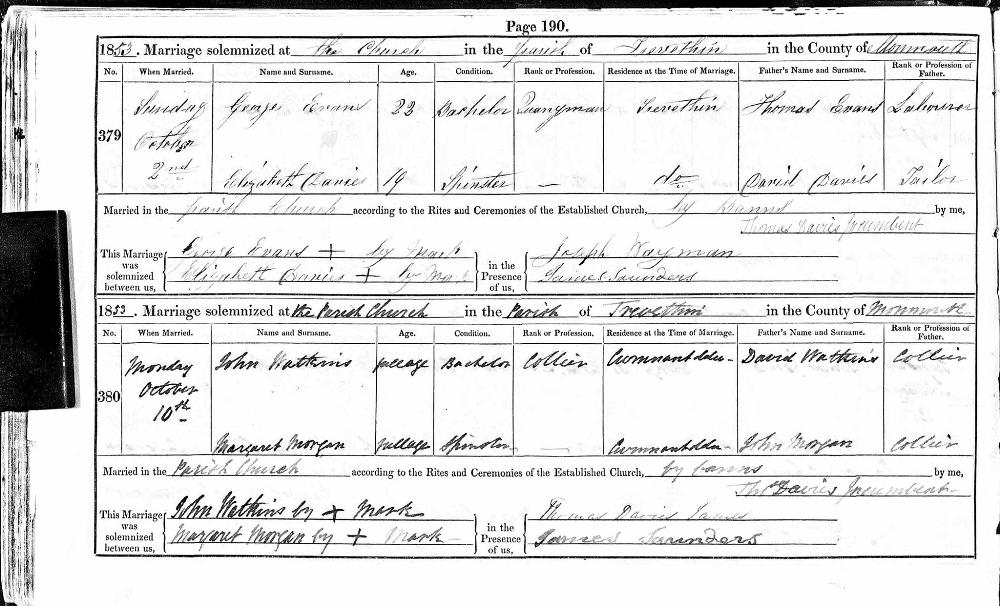 Page 190.
1853. Marriage solemnized at the Church in the parish of Trevethin in the County of Monmouth
No. When Married. Name and Surname. Age. Condition. Rank or Profession. Residence at the Time of Marriage. Father's Name and Surname. Rank or Profession of Father.
379 Sunday October 2nd George Evans 22 Bachelor Quarryman Trevethin Thomas Evans Labourer
Elizabeth Davies 19 Spinster — do David Davies Tailor
Married in the parish Church according to the Rites and Ceremonies of the Established Church, by Banns by me,
Thomas Davies Incumbent
This Marriage was solemnized between us, George Evans + by Mark in the Presence of us, Joseph Wayman
Elizabeth Davies + by Mark James Saunders
1853. Marriage solemnized at the Parish Church in the Parish of Trevethin in the County of Monmouth
No. When Married. Name and Surname. Age. Condition. Rank or Profession. Residence at the Time of Marriage. Father's Name and Surname. Rank or Profession of Father.
380 Monday October 10th John Watkins full age Bachelor Collier Cwmnantddu David Watkins Collier
Margaret Morgan full age Spinster — Cwmnantddu John Morgan Collier
Married in the Parish Church according to the Rites and Ceremonies of the Established Church, by banns by me,
Thos Davies Incumbent
This Marriage was solemnized between us, John Watkins by + Mark in the Presence of us, Thomas Davis
Margaret Morgan by + Mark James Saunders